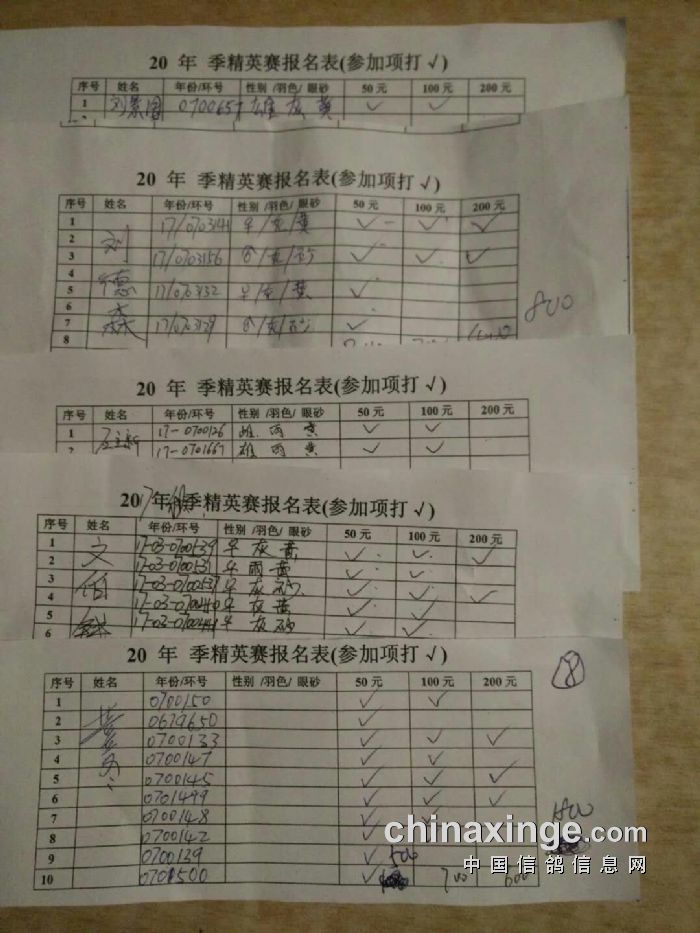 20 年 季精英赛报名表(参加项打 √)
序号 姓名 年份/环号 性别 /羽色/ 眼砂 50 元 100 元 200 元
1 刘景国 0700657 雄 灰 黄 √ √
20 年 季精英赛报名表(参加项打 √)
序号 姓名 年份/环号 性别 /羽色/ 眼砂 50 元 100 元 200 元
1 17/0703141 √ √ √
2 刘
3 17/0703156 √ √ √
5 德 √
6
7 森 √
8
800
20 年 季精英赛报名表(参加项打 √)
序号 姓名 年份/环号 性别 /羽色/ 眼砂 50 元 100 元 200 元
1 17-0700126 雌 雨 黄 √ √
2 17-0701667 雄 雨 黄 √ √
2017年秋季精英赛报名表(参加项打 √)
序号 姓名 年份/环号 性别 /羽色/ 眼砂 50 元 100 元 200 元
1 文 17-03-0700139 灰 黄 √ √ √
2 17-03-0700131 雨 黄 √ √
4 17-03-0700137 灰 砂 √ √ √
5 17-03-0700140 灰 黄 √ √
6 灰 砂 √ √
20 年 季精英赛报名表(参加项打 √)
序号 姓名 年份/环号 性别 /羽色/ 眼砂 50 元 100 元 200 元
⑧
1 0700150 √ √
2 0679650 √
3 0700133 √ √ √
4 0700147 √ √
5 0700145 √ √ √
6 0701499 √ √ √
7 0700148 √ √
8 0700142 √
9 0700139 √ 500
10 0701500 √ 700 600
1800
chinaxinge.com
中国信鸽信息网